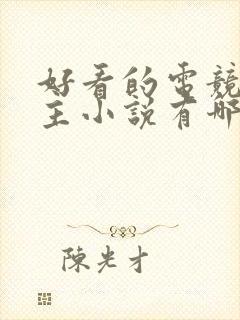 好看的电竞
主小说有哪
陳光才